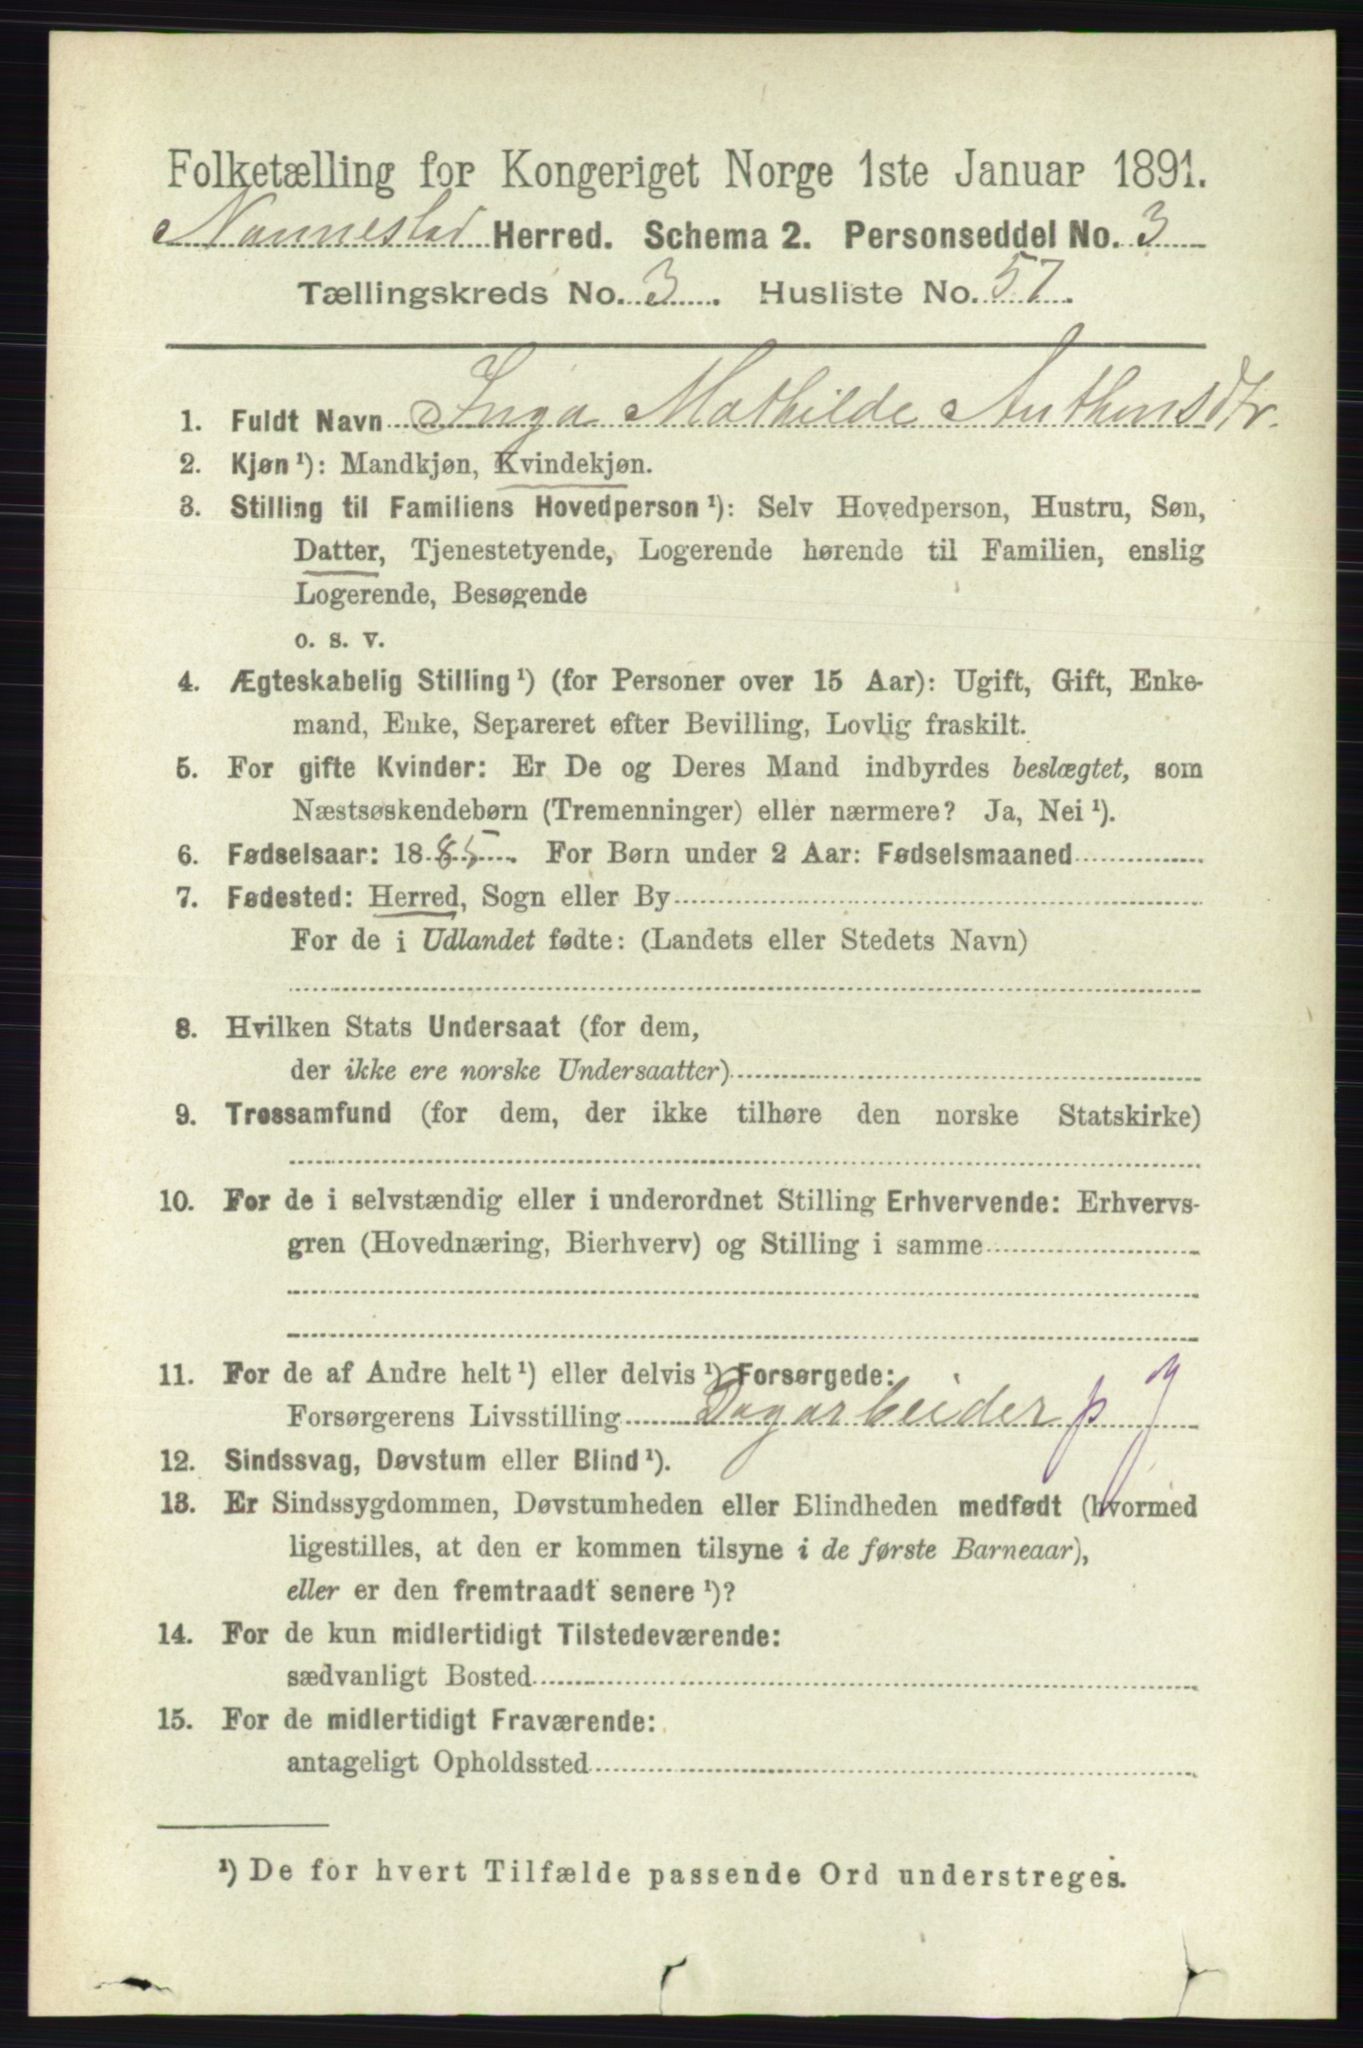 Folketælling for Kongeriget Norge 1ste Januar 1891.
Nannestad Herred. Schema 2. Personseddel No. 3
Tællingskreds No. 3. Husliste No. 57.
1. Fuldt Navn Inga Mathilde Anthonsdtr.
2. Kjøn¹): Mandkjøn, Kvindekjøn.
3. Stilling til Familiens Hovedperson¹): Selv Hovedperson, Hustru, Søn,
Datter, Tjenestetyende, Logerende hørende til Familien, enslig
Logerende, Besøgende
o. s. v.
4. Ægteskabelig Stilling¹) (for Personer over 15 Aar): Ugift, Gift, Enke-
mand, Enke, Separeret efter Bevilling, Lovlig fraskilt.
5. For gifte Kvinder: Er De og Deres Mand indbyrdes beslægtet, som
Næstsøskendebørn (Tremenninger) eller nærmere? Ja, Nei¹).
6. Fødselsaar: 1885. For Børn under 2 Aar: Fødselsmaaned
7. Fødested: Herred, Sogn eller By
For de i Udlandet fødte: (Landets eller Stedets Navn)
8. Hvilken Stats Undersaat (for dem,
der ikke ere norske Undersaatter)
9. Trossamfund (for dem, der ikke tilhøre den norske Statskirke)
10. For de i selvstændig eller i underordnet Stilling Erhvervende: Erhvervs-
gren (Hovednæring, Bierhverv) og Stilling i samme
11. For de af Andre helt¹) eller delvis¹) Forsørgede:
Forsørgerens Livsstilling Dagarbeider p
12. Sindssvag, Døvstum eller Blind¹).
13. Er Sindssygdommen, Døvstumheden eller Blindheden medfødt (hvormed
ligestilles, at den er kommen tilsyne i de første Barneaar),
eller er den fremtraadt senere¹)?
14. For de kun midlertidigt Tilstedeværende:
sædvanligt Bosted
15. For de midlertidigt Fraværende:
antageligt Opholdssted
¹) De for hvert Tilfælde passende Ord understreges.